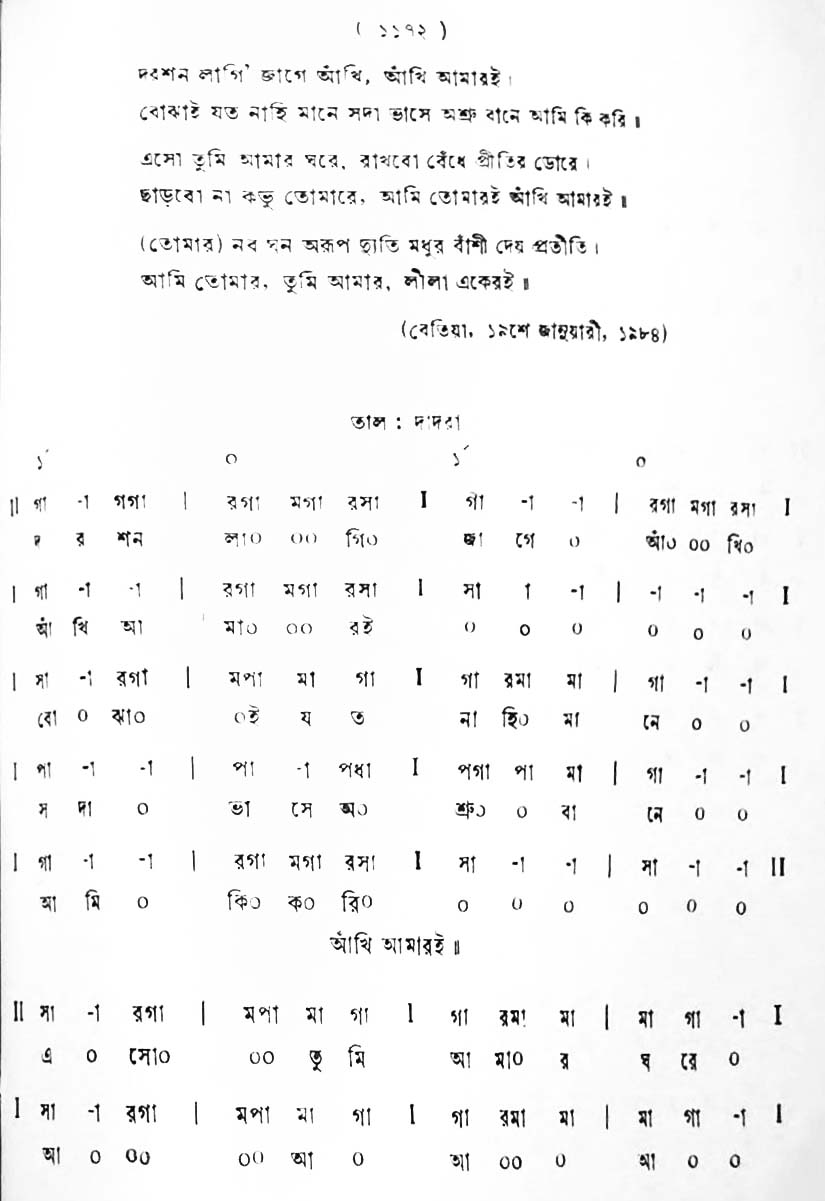 ( ১১৭২ )
দরশন লাগি' জাগে আঁখি, আঁখি আমারই।
বোঝাই যত নাহি মানে সদা ভাসে অশ্রু বানে আমি কি করি॥
এসো তুমি আমার ঘরে, রাখবো বেঁধে প্রীতির ডোরে।
ছাড়বো না কভু তোমারে, আমি তোমারই আঁখি আমারই॥
(তোমার) নব ঘন অরূপ দ্যুতি মধুর বাঁশী দেয় প্রতীতি।
আমি তোমার, তুমি আমার, লীলা একেরই॥
(বেতিয়া, ১৯শে জানুয়ারী, ১৯৮৪)
তাল : দাদরা
১´ ০ ১´ ০
II গা -া গগা | রগা মগা রসা I গা -া -া | রগা মগা রসা I
দ র শন লা০ ০০ গি০ জা গে ০ আঁ০ ০০ খি০
I গা -া -া | রগা মগা রসা I সা া -া | -া -া -া I
আঁ খি আ মা০ ০০ রই ০ ০ ০ ০ ০ ০
I সা -া রগা | মপা মা গা I গা রমা মা | গা -া -া I
বো ০ ঝা০ ০ই য ত না হি০ মা নে ০ ০
I পা -া -া | পা -া পধা I পগা পা মা | গা -া -া I
স দা ০ ভা সে অ০ শ্রু০ ০ বা নে ০ ০
I গা -া -া | রগা মগা রসা I সা -া -া | সা -া -া II
আ মি ০ কি০ ক০ রি০ ০ ০ ০ ০ ০ ০
আঁখি আমারই॥
II সা -া রগা | মপা মা গা I গা রমা মা | মা গা -া I
এ ০ সো০ ০০ তু মি আ মা০ র ঘ রে ০
I সা -া রগা | মপা মা গা I গা রমা মা | মা গা -া I
আ ০ ০০ ০০ আ ০ আ ০০ ০ আ ০ ০